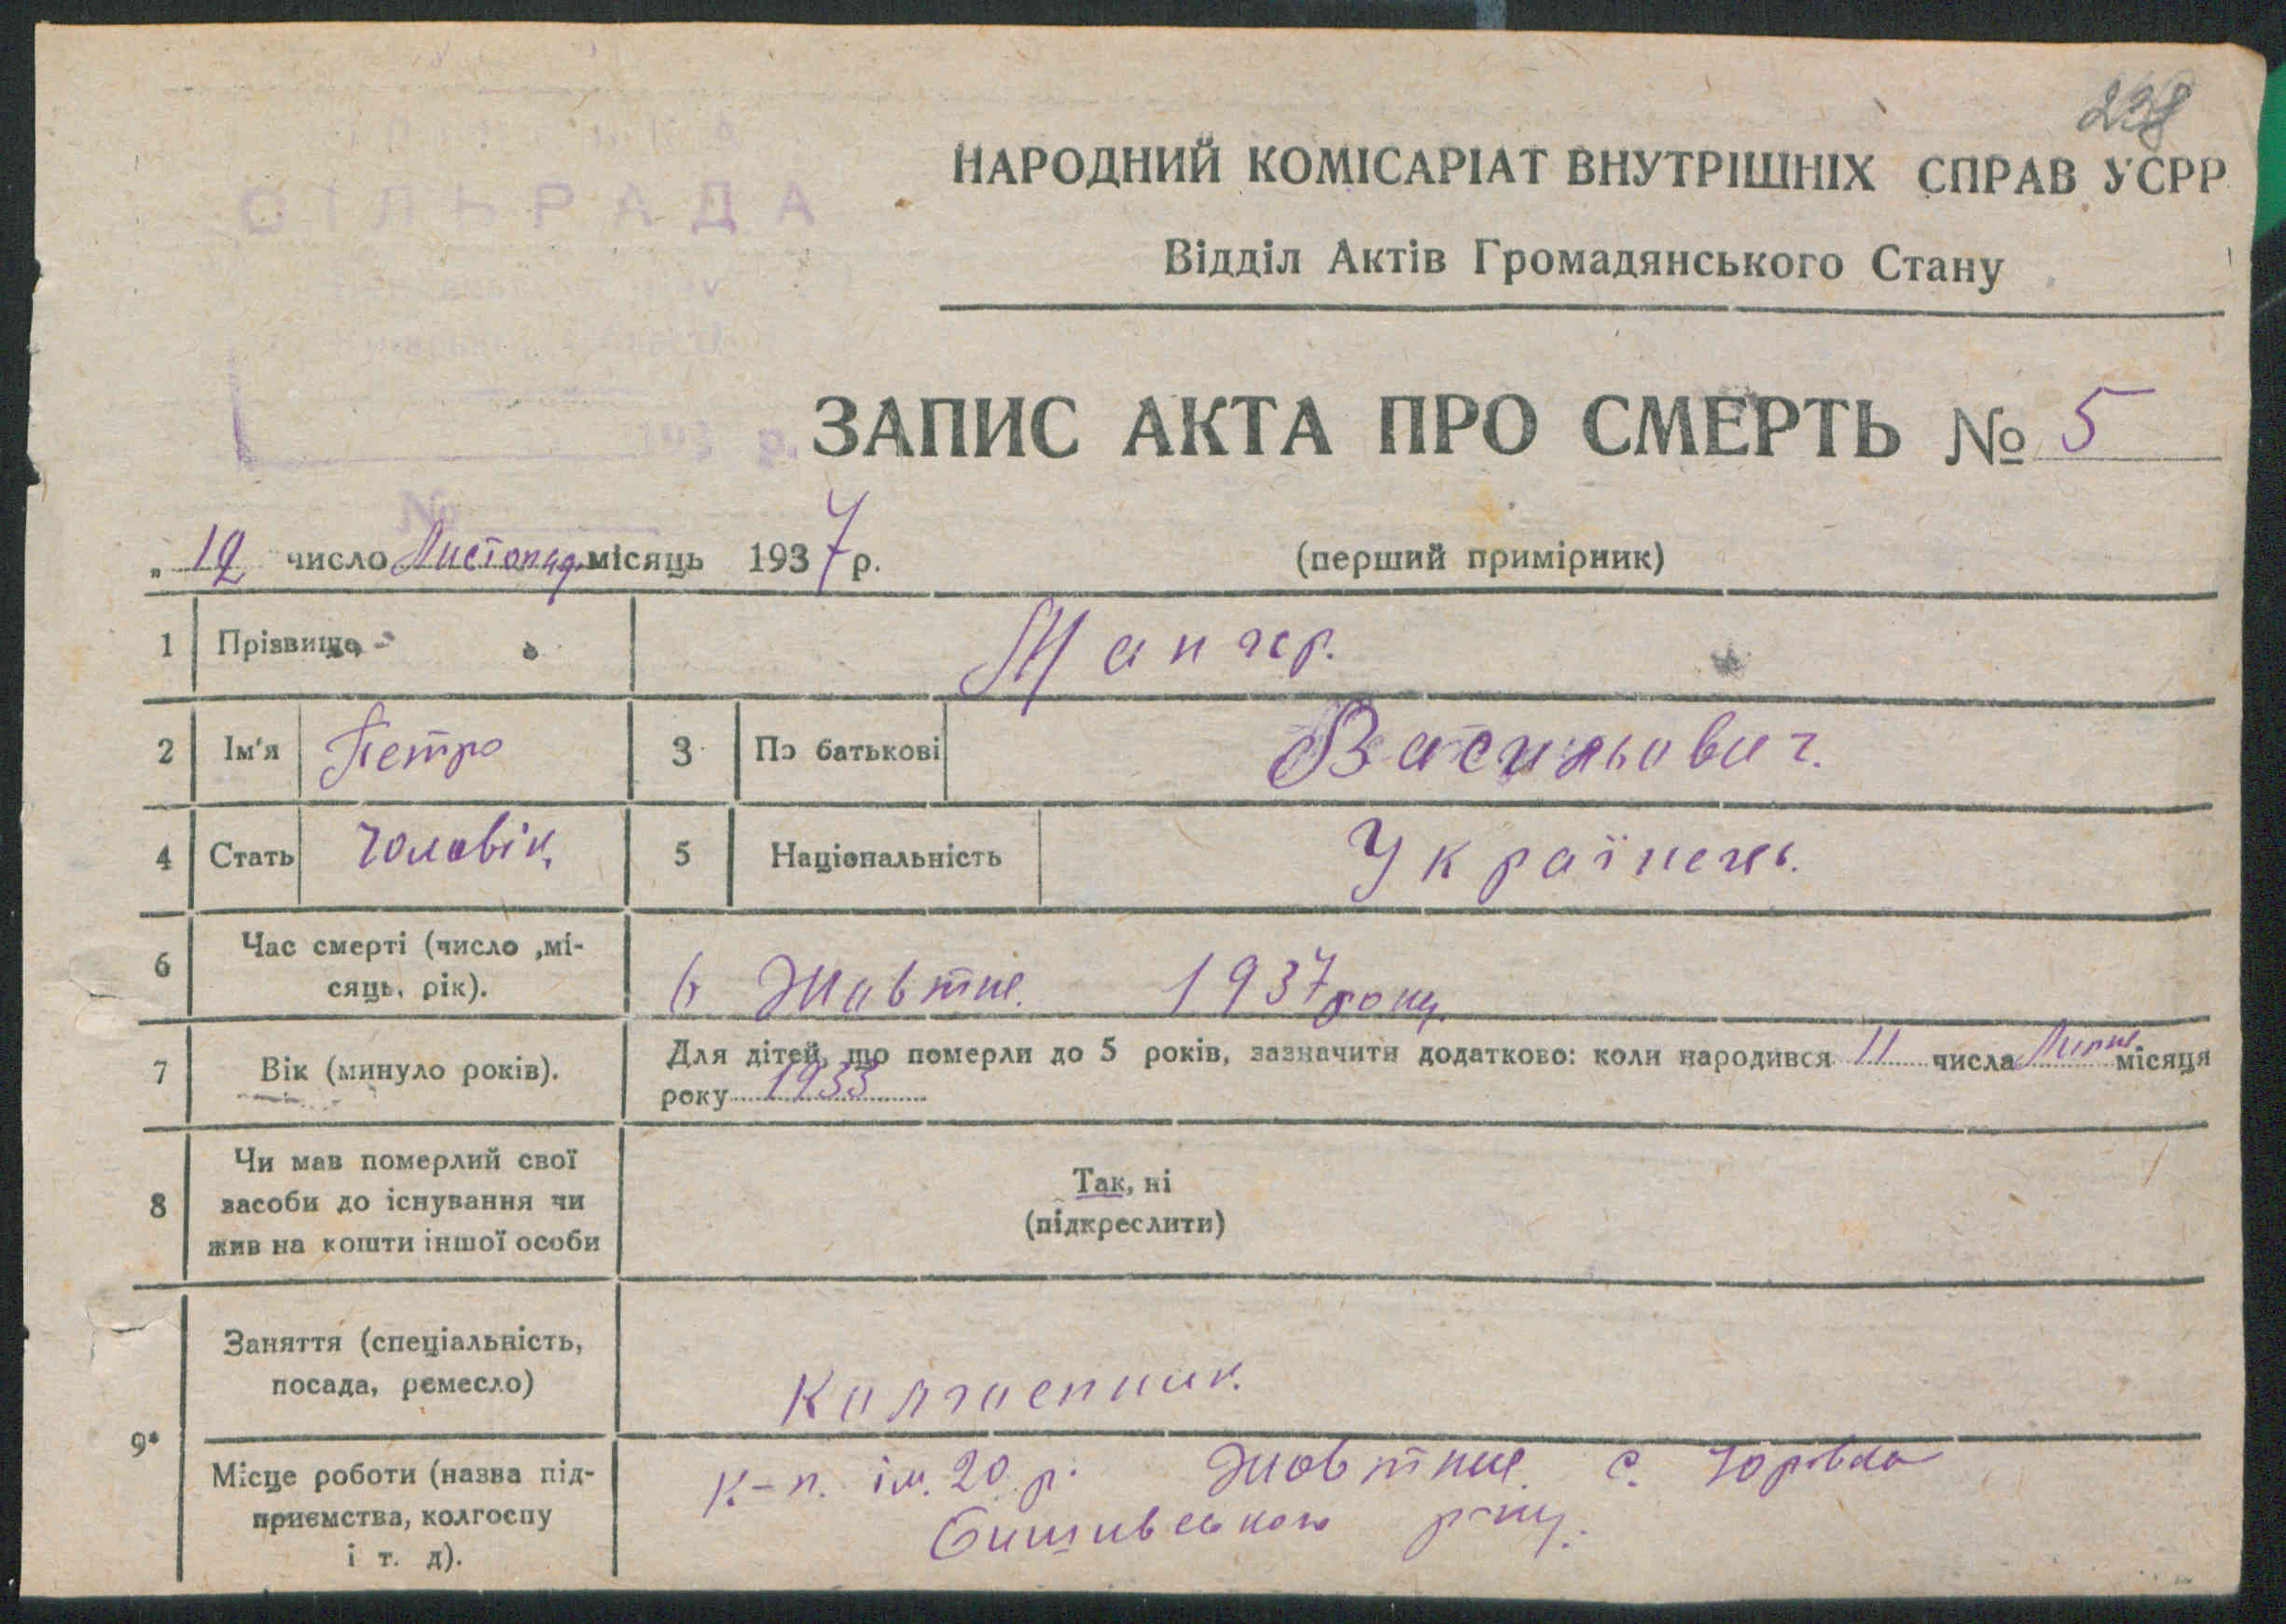 238
НАРОДНИЙ КОМІСАРІАТ ВНУТРІШНІХ СПРАВ УСРР
СІЛЬРАДА
Відділ Актів Громадянського Стану
ЗАПИС АКТА ПРО СМЕРТЬ № 5
193 р.
№
„ 12 число Листопад місяць 1937 р. (перший примірник)
1 Прізвище
2 Ім'я Петро 3 По батькові Васильович.
4 Стать Чоловік 5 Національність Українець.
6 Час смерті (число ,мі-
сяць, рік). 6 Жовтне. 1937 року.
7 Вік (минуло років). Для дітей, що померли до 5 років, зазначити додатково: коли народився 11 числа Липня місяця
року 1933
8 Чи мав померлий свої
засоби до існування чи
жив на кошти іншої особи
Так, ні
(підкреслити)
9* Заняття (спеціальність,
посада, ремесло) Колгоспник.
Місце роботи (назва під-
приємства, колгоспу
і т. д).
к-п. ім. 20 р. Жовтня с. Юрівка
р-ну.